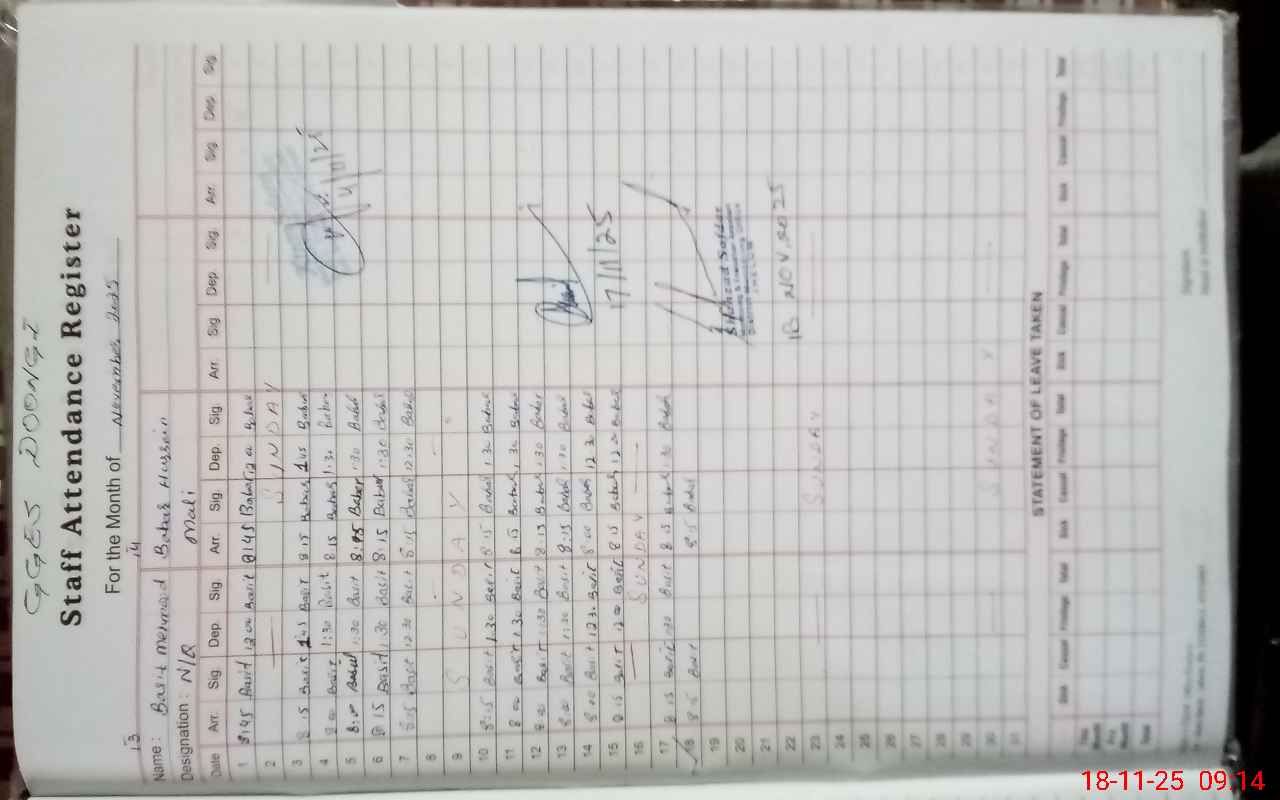 GGES DOONGI
Staff Attendance Register
For the Month of November 2025
13 14
Name: Basit mehmood Babar Hussain
Designation: N/Q Mali
Date Arr. Sig Dep. Sig Arr. Sig Dep. Sig Arr. Sig Dep. Sig Arr. Sig Dep Sig
1 8:45 Basit 12 00 Basit 8:45 Babar 12 00 Babar
2 SUNDAY
3 8 15 Basit 1 45 Basit 8 15 Babar 1 45 Babar
4 8 00 Basit 1:30 Basit 8 15 Babar 1:30 Babar
5 8:00 Basit 1:30 Basit 8:15 Babar 1:30 Babar
6 8 15 Basit 1:30 Basit 8:15 Babar 1:30 Babar
7 8:15 Basit 12:30 Basit 8:15 Babar 12:30 Babar
8
9 SUNDAY
10 8:15 Basit 1:30 Basit 8:15 Babar 1:30 Babar
11 8 00 Basit 1:30 Basit 8 15 Babar 1:30 Babar
12 8 00 Basit 1:30 Basit 8:15 Babar 1:30 Babar
13 8 00 Basit 1:30 Basit 8:15 Babar 1:30 Babar
14 8 00 Basit 12 30 Basit 8:00 Babar 12 30 Babar
15 8 15 Basit 12 00 Basit 8 15 Babar 12 00 Babar
16 SUNDAY
17 8 15 Basit 1:30 Basit 8 15 Babar 1:30 Babar
18 8:15 Basit 8:15 Babar
19
20
21
22
23 SUNDAY
24
25
26
27
28
29
30 SUNDAY
31
17/11/25
18 NOV 2025
STATEMENT OF LEAVE TAKEN
Sick Casual Privilege Total Sick Casual Privilege Total Sick Casual Privilege Total Sick Casual Privilege Total
Total
18-11-25 09:14